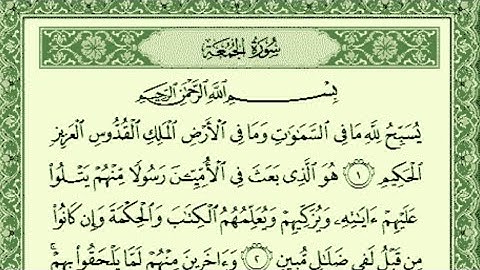 سُورَةُ الجُمُعَةِ
بِسْمِ ٱللَّهِ ٱلرَّحْمَٰنِ ٱلرَّحِيمِ
يُسَبِّحُ لِلَّهِ مَا فِى ٱلسَّمَٰوَٰتِ وَمَا فِى ٱلْأَرْضِ ٱلْمَلِكِ ٱلْقُدُّوسِ ٱلْعَزِيزِ
ٱلْحَكِيمِ ١ هُوَ ٱلَّذِى بَعَثَ فِى ٱلْأُمِّيِّـۧنَ رَسُولًا مِّنْهُمْ يَتْلُوا۟
عَلَيْهِمْ ءَايَٰتِهِۦ وَيُزَكِّيهِمْ وَيُعَلِّمُهُمُ ٱلْكِتَٰبَ وَٱلْحِكْمَةَ وَإِن كَانُوا۟
مِن قَبْلُ لَفِى ضَلَٰلٍ مُّبِينٍ ٢ وَءَاخَرِينَ مِنْهُمْ لَمَّا يَلْحَقُوا۟ بِهِمْ ۚ